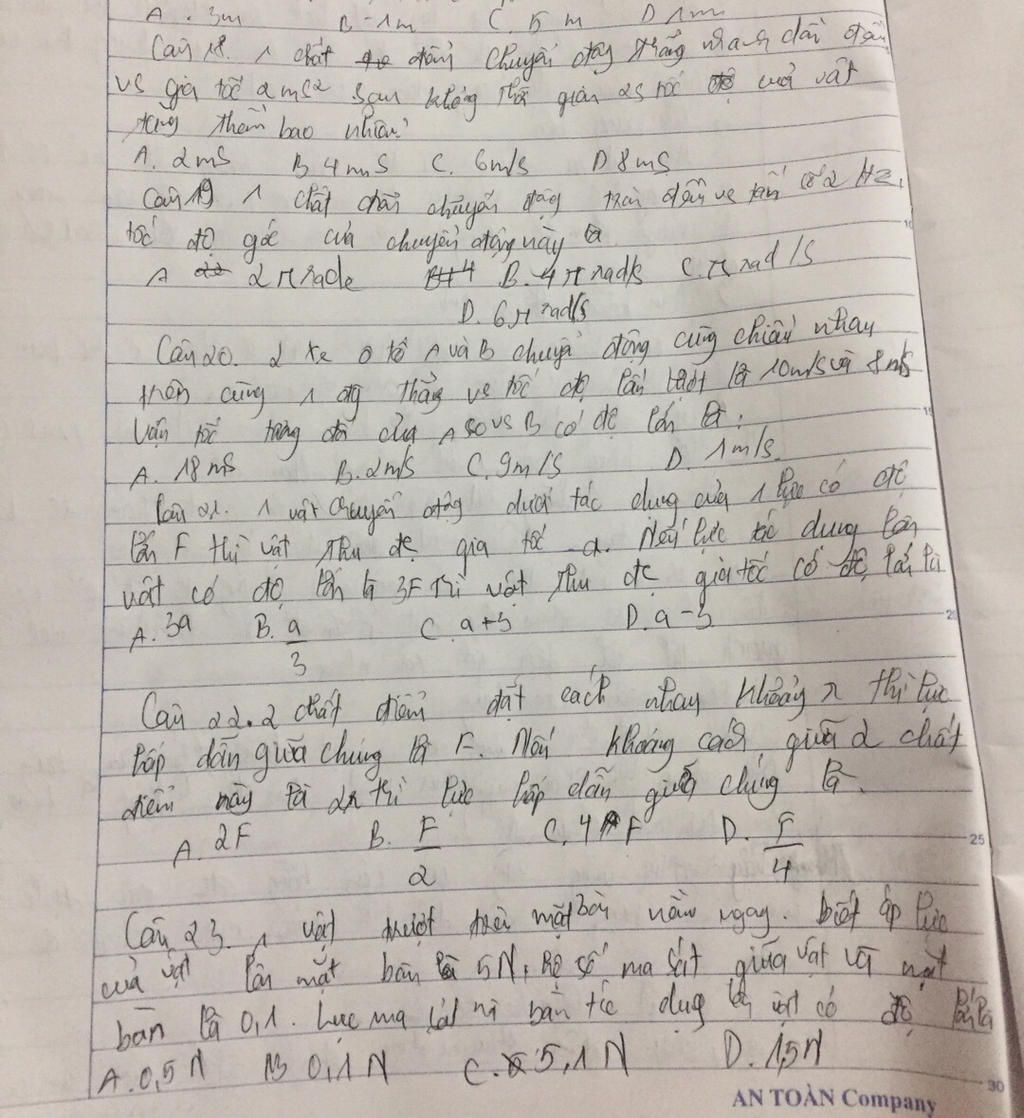 A. 3m B -1m C. 5 m D 1m
Câu 18. 1 chất điểm chuyển động thẳng nhanh dần đều
vs gia tốc 2 ms² sau khoảng thời gian 2s tốc độ của vật
tăng thêm bao nhiêu?
A. 2mS B 4mS C. 6m/s D 8mS
Câu 19 1 chất điểm chuyển động tròn đều vs tần số 2 Hz.
tốc độ góc của chuyển động này là
A 2π rad B. 4π rad/s C. π rad/s
D. 6π rad/s
Câu 20. 2 xe ô tô A và B chuyển động cùng chiều nhau
trên cùng 1 đg thẳng vs tốc độ lần lượt là 10m/s và 8m/s
Vận tốc tương đối của A so vs B có độ lớn là:
A. 18 mS B. 2m/s C. 9m/s D. 1m/s.
Câu 21. 1 vật chuyển động dưới tác dung của 1 lực có độ
lớn F thì vật thu đc gia tốc a. Nếu lực tác dung lên
vật có độ lớn là 3F thì vật thu đc gia tốc có độ lớn là
A. 3a B. a/3 C. a+3 D. a-3
Câu 22. 2 chất điểm đặt cách nhau khoảng r thì lực
hấp dẫn giữa chúng là F. Nếu khoảng cách giữa 2 chất
điểm này là 2r thì lực hấp dẫn giữa chúng là.
A. 2F B. F/2 C. 4F D. F/4
Câu 23. 1 vật trượt trên mặt bàn nằm ngang. biết áp lực
của vật lên mặt bàn là 5N, hệ số ma sát giữa vật và mặt
bàn là 0,1. Lực ma sát bàn tác dụg lên vật có độ lớn là
A. 0,5N B 0,1N C. 5,1N D. 1,5N
25
30
AN TOÀN Company